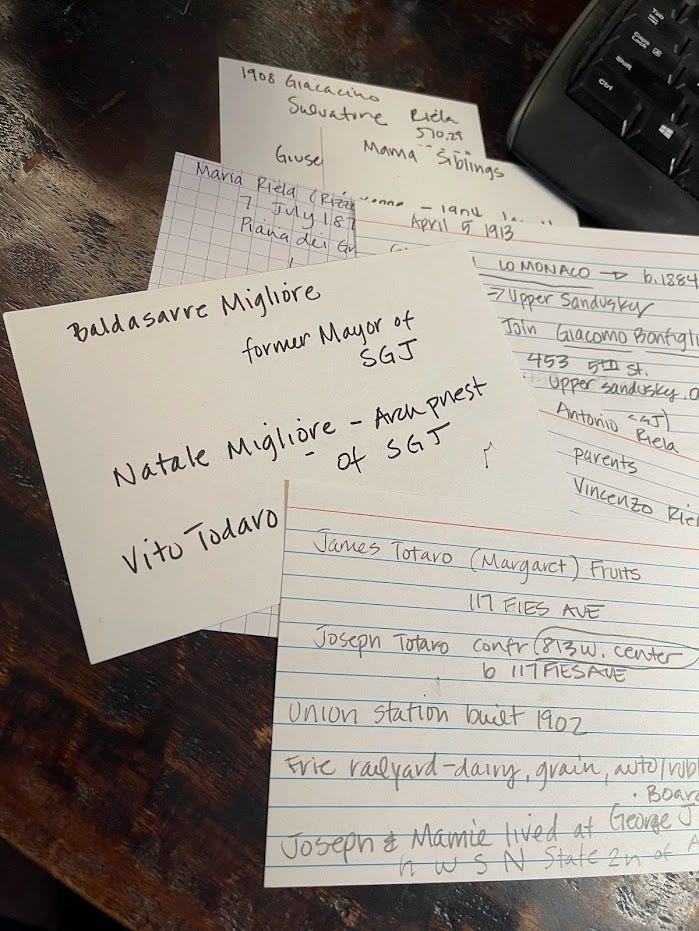 1908 Giacacino
Salvatore Riela
570.29
Giuse
Mama Siblings
Maria Riela
7 July 187
Piana dei Gr
April 5 1913
LO MONACO → b. 1884
→ Upper Sandusky
Join Giacomo Bonfigli
453 5TH St.
Upper Sandusky, O
Antonio (SGJ)
Riela
parents
Vincenzo Riel
Baldasarre Migliore
former Mayor of
SGJ
Natale Migliore - Archpriest
of SGJ
Vito Todaro
James Totaro (Margaret) Fruits
117 FIES AVE
Joseph Totaro confr 813 W. center
b 117 FIES AVE
Union Station built 1902
Erie railyard-dairy, grain, auto/rub
· Board
Joseph & Mamie lived at George J
h W S N State 2 n of A
Tab
Caps Lock
Shift
Ctrl